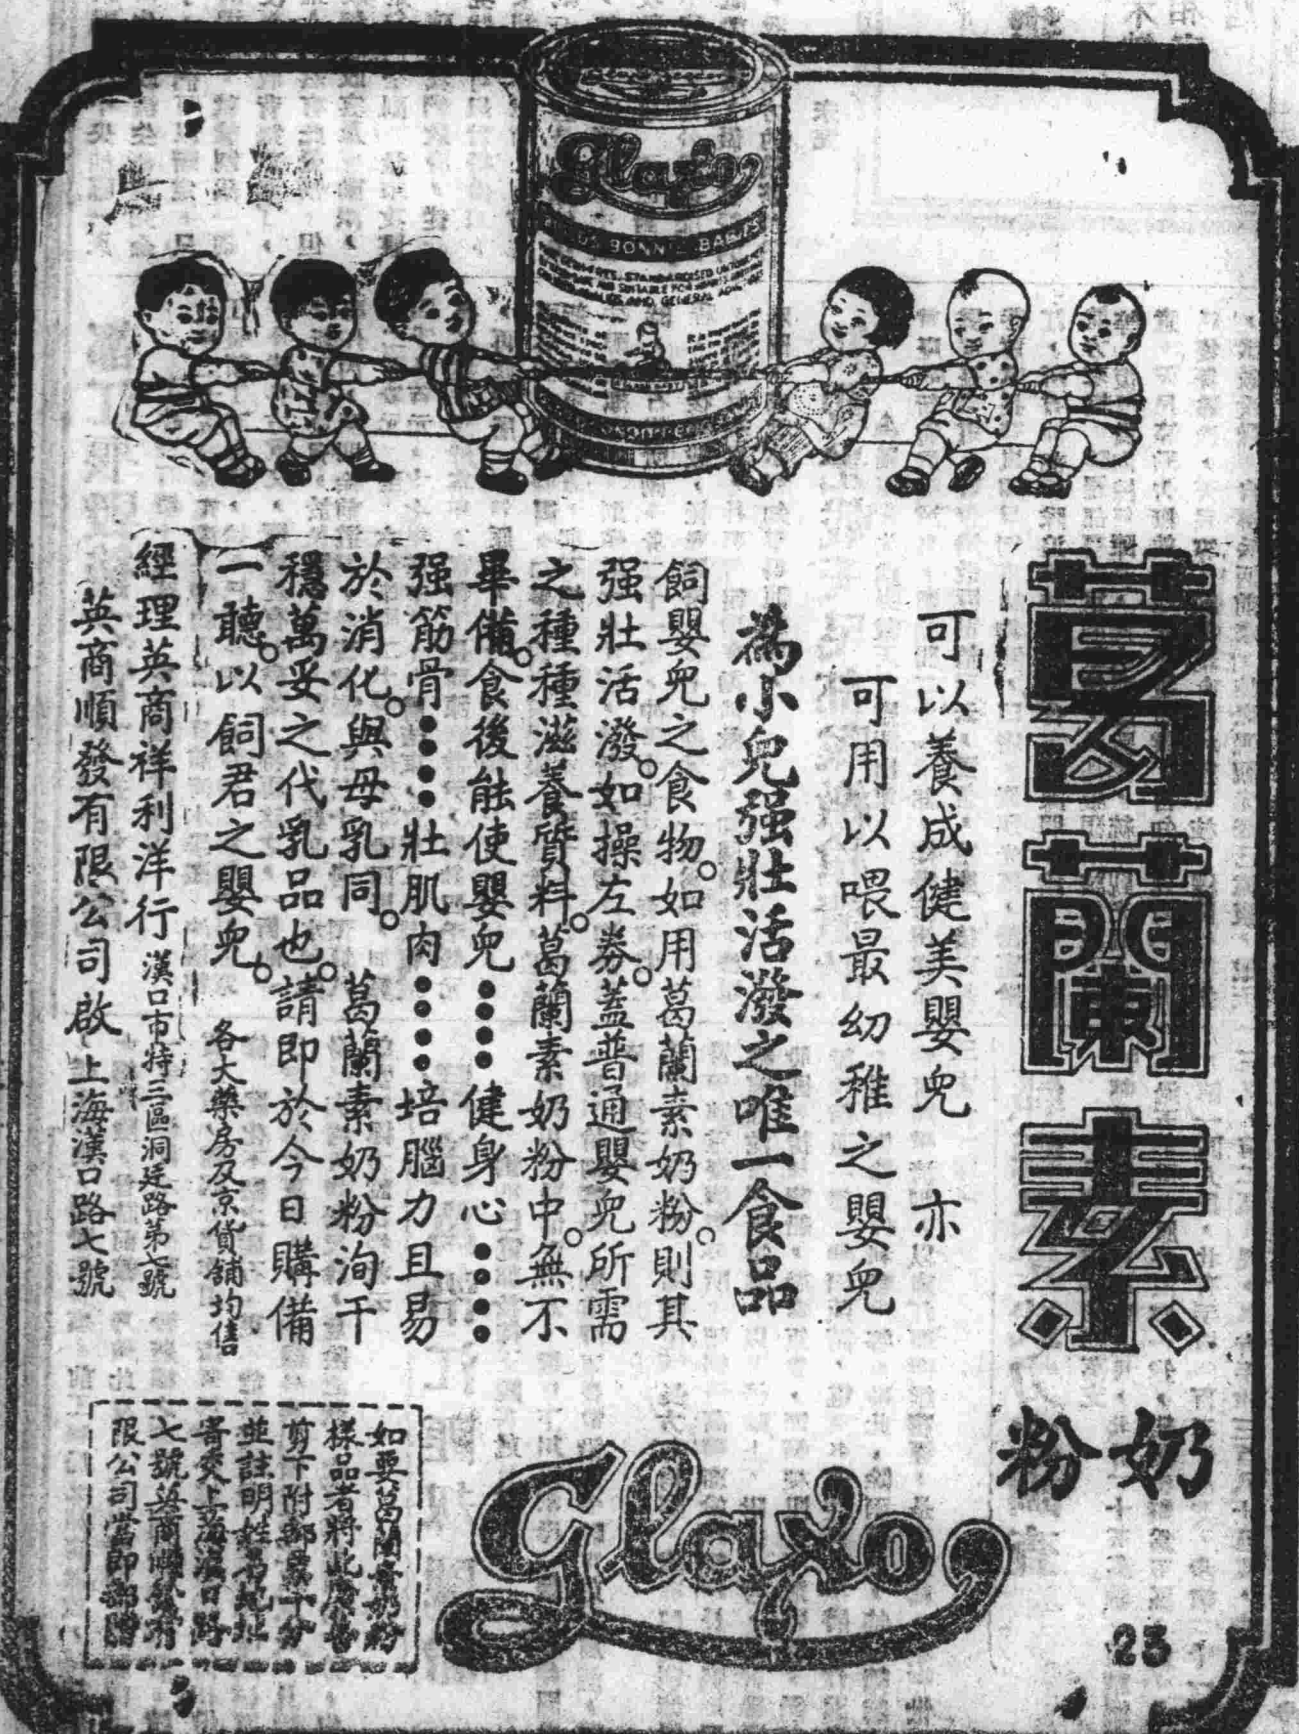 Glaxo
BONNIE BABIES
葛蘭素
奶粉
可以養成健美嬰兒　亦
可用以喂最幼稚之嬰兒
為小兒强壯活潑之唯一食品
飼嬰兒之食物。如用葛蘭素奶粉。則其
强壯活潑。如操左券。蓋普通嬰兒所需
之種種滋養質料。葛蘭素奶粉中。無不
畢備。食後能使嬰兒●●●●健身心●●●●
强筋骨●●●●壯肌肉●●●●培腦力且易
於消化。與母乳同。　葛蘭素奶粉洵千
穩萬妥之代乳品也。請即於今日購備
一聽。以飼君之嬰兒。　各大藥房及京貨舖均售
經理英商祥利洋行　漢口市特三區洞廷路第七號
英商順發有限公司啟　上海漢口路七號
如要葛蘭素奶粉
樣品者將此廣告
剪下附郵票十分
並註明姓名地址
寄交上海漢口路
七號英商順發有
限公司當即郵贈
Glaxo
23